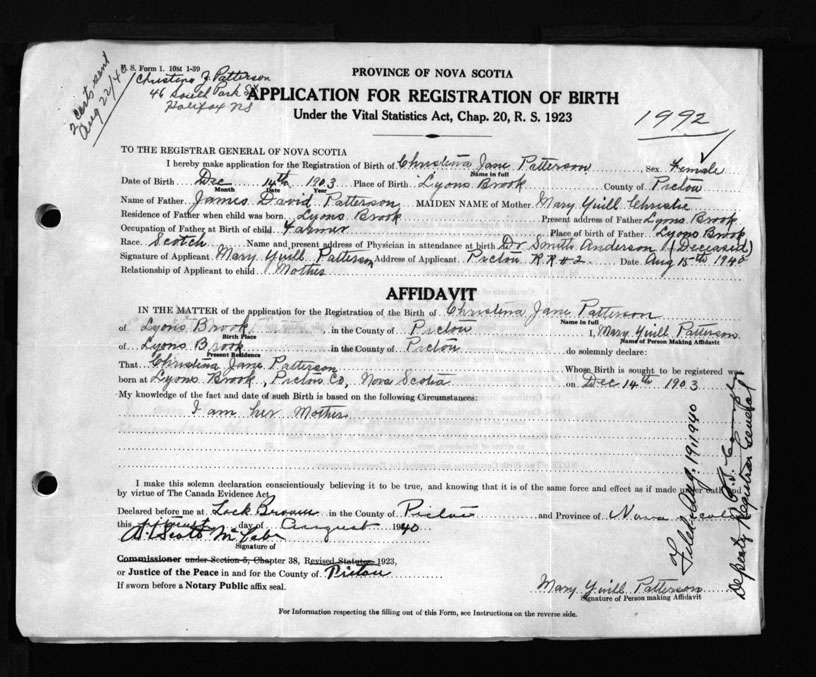 2 certs sent
Aug 22/40
V. S. Form 1. 10M 1-39
Christena J. Patterson
46 South Park St
Halifax NS
PROVINCE OF NOVA SCOTIA
APPLICATION FOR REGISTRATION OF BIRTH
Under the Vital Statistics Act, Chap. 20, R. S. 1923
1992
TO THE REGISTRAR GENERAL OF NOVA SCOTIA
I hereby make application for the Registration of Birth of Christena Jane Patterson Sex Female
Name in full
Date of Birth Dec 14th 1903 Place of Birth Lyons Brook County of Pictou
Month Date Year
Name of Father James David Patterson MAIDEN NAME of Mother Mary Yuill Christie
Residence of Father when child was born Lyons Brook Present address of Father Lyons Brook
Occupation of Father at Birth of child Farmer Place of birth of Father Lyons Brook
Race Scotch Name and present address of Physician in attendance at birth Dr Smith Anderson (Deceased)
Signature of Applicant Mary Yuill Patterson Address of Applicant Pictou RR #2 Date Aug 15th 1940
Relationship of Applicant to child Mother
AFFIDAVIT
IN THE MATTER of the application for the Registration of the Birth of Christena Jane Patterson
Name in full
of Lyons Brook in the County of Pictou I, Mary Yuill Patterson
Birth Place Name of Person Making Affidavit
of Lyons Brook in the County of Pictou do solemnly declare:
Present Residence
That Christena Jane Patterson Whose Birth is sought to be registered was
born at Lyons Brook, Pictou Co, Nova Scotia on Dec 14th 1903
My knowledge of the fact and date of such Birth is based on the following Circumstances:
I am her Mother
I make this solemn declaration conscientiously believing it to be true, and knowing that it is of the same force and effect as if made under oath and
by virtue of The Canada Evidence Act.
Declared before me at Lock Broom in the County of Pictou and Province of Nova Scotia
this day of August 1940
Signature of
Commissioner under Section 5, Chapter 38, Revised Statutes 1923,
or Justice of the Peace in and for the County of Pictou
If sworn before a Notary Public affix seal.
Mary Yuill Patterson
Signature of Person making Affidavit
For Information respecting the filling out of this Form, see Instructions on the reverse side.
Filed Aug. 19, 1940
Deputy Registrar General